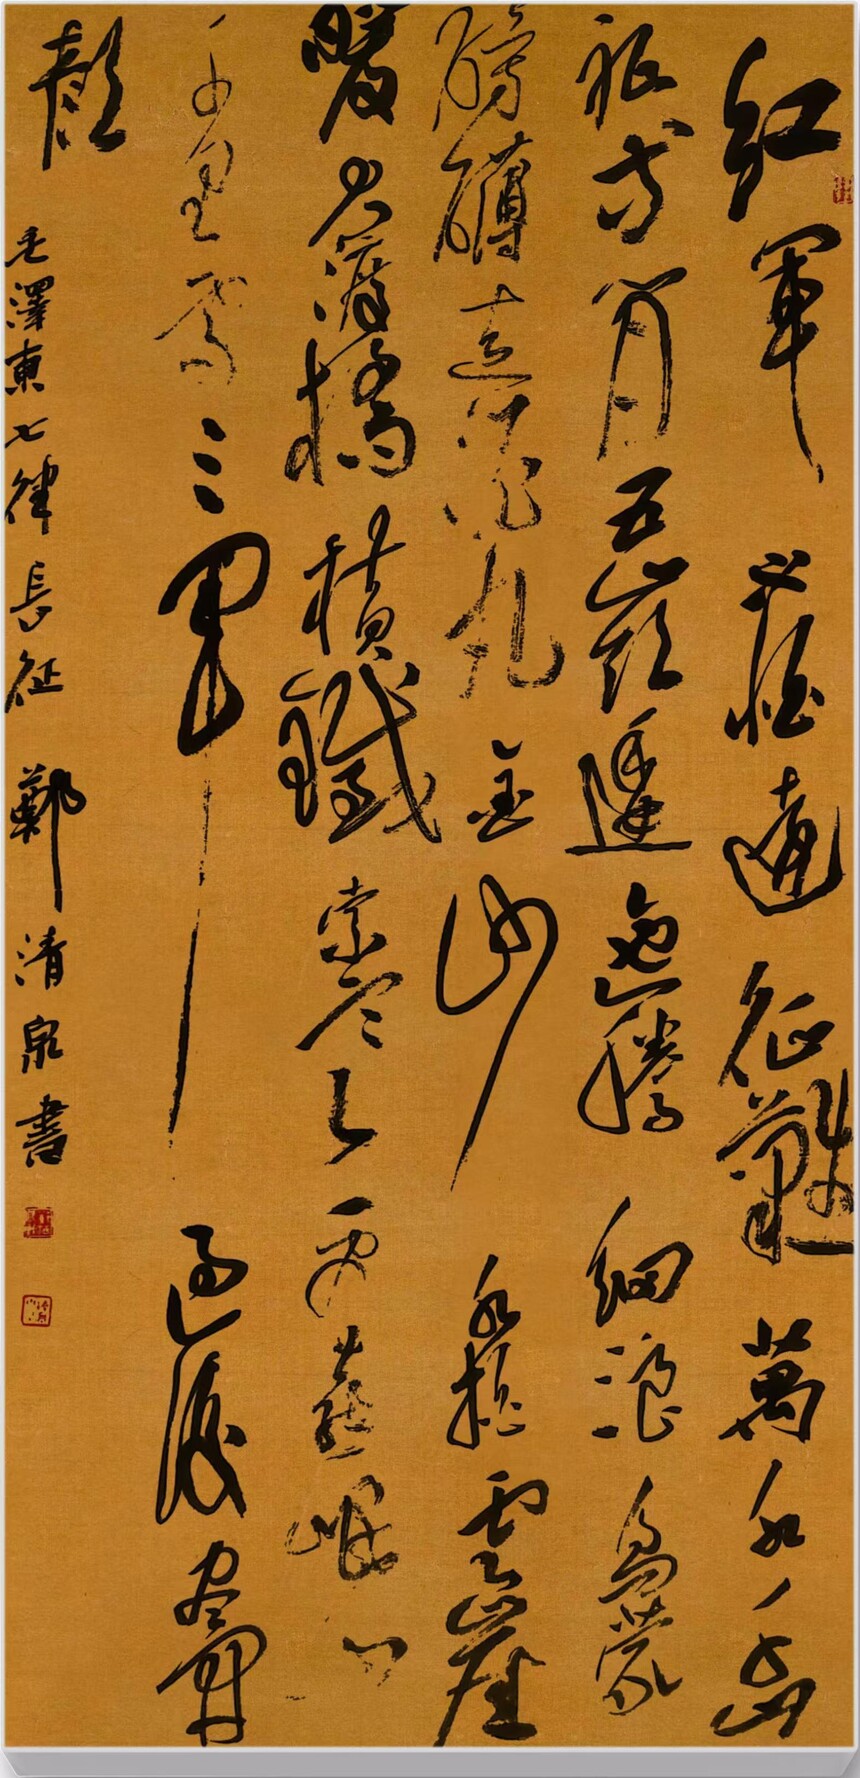 紅軍不怕遠征難萬水千山
祗等閒五嶺逶迤騰細浪烏蒙
磅礴走泥丸金沙水拍雲崖
暖大渡橋橫鐵索寒更喜岷山
千里雪三軍過後盡開
顏
毛澤東七律長征鄭清泉書